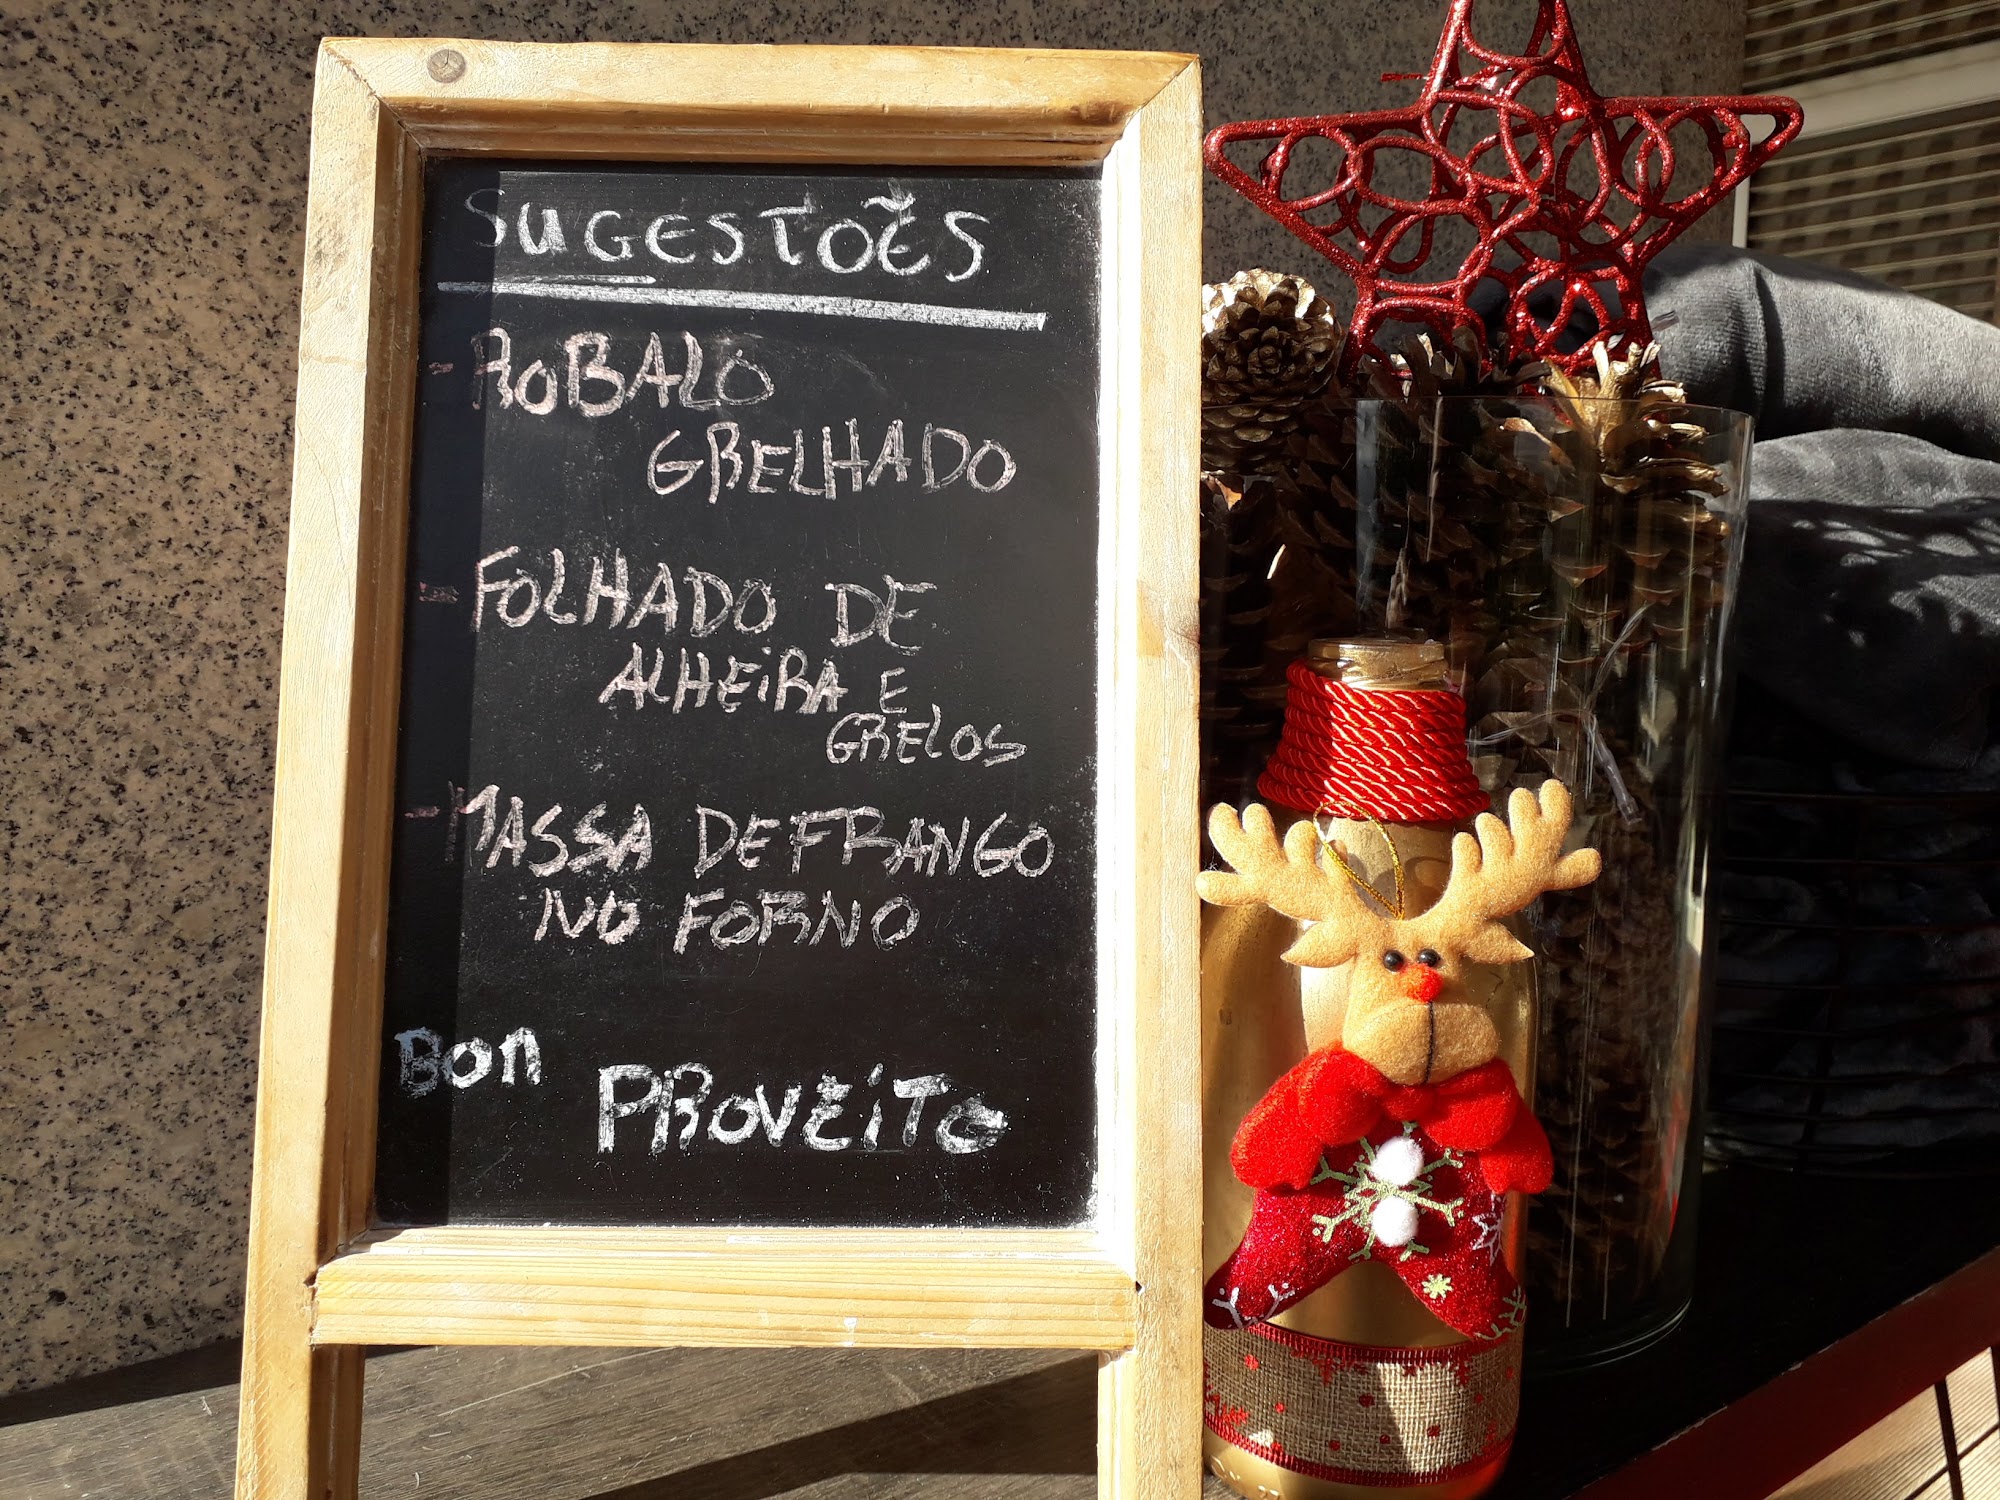 SUGESTÕES
- ROBALO
GRELHADO
- FOLHADO DE
ALHEIRA E
GRELOS
- MASSA DE FRANGO
NO FORNO
BON
PROVEITO